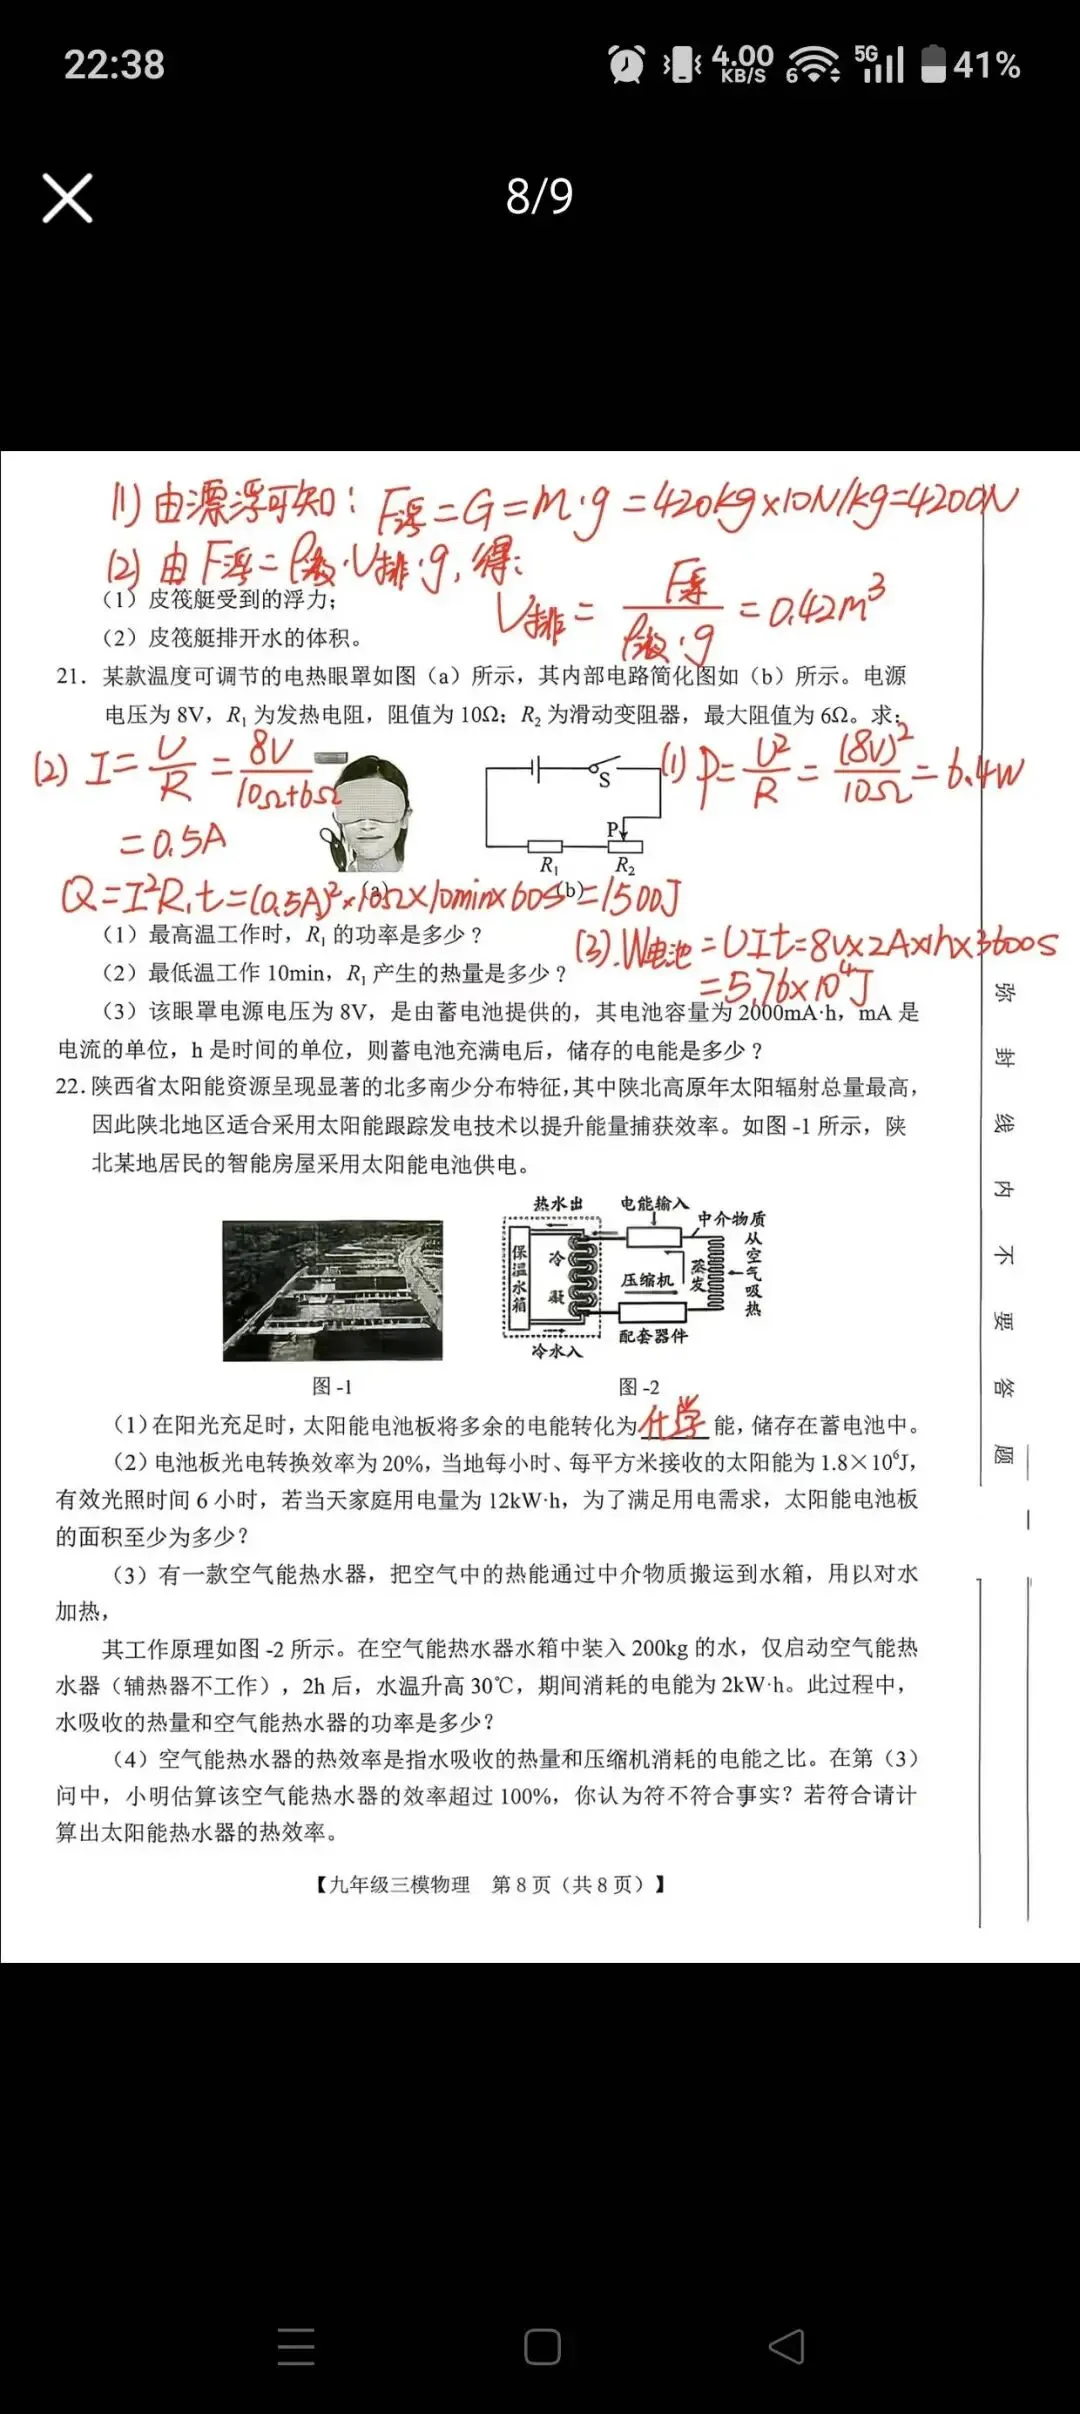 22:38
4.00 KB/S 6 5G 41%
8/9
(1) 由漂浮可知: F浮=G=m·g=420kg×10N/kg=4200N
(2) 由F浮=ρ液·V排·g,得:
V排= F浮/ρ液·g =0.42m³
(1)皮筏艇受到的浮力;
(2)皮筏艇排开水的体积。
21. 某款温度可调节的电热眼罩如图(a)所示,其内部电路简化图如(b)所示。电源
电压为8V,R₁为发热电阻,阻值为10Ω;R₂为滑动变阻器,最大阻值为6Ω。求:
(2) I=U/R=8V/10Ω+6Ω
=0.5A
(1) P=U²/R=(8V)²/10Ω=6.4W
S
P
R₁
R₂
(a)
(b)
Q=I²R₁t=(0.5A)²×10Ω×10min×60s=1500J
(1)最高温工作时,R₁的功率是多少?
(3).W电池=UIt=8V×2A×1h×3600s
=5.76×10⁴J
(2)最低温工作10min,R₁产生的热量是多少?
(3)该眼罩电源电压为8V,是由蓄电池提供的,其电池容量为2000mA·h,mA是
电流的单位,h是时间的单位,则蓄电池充满电后,储存的电能是多少?
22. 陕西省太阳能资源呈现显著的北多南少分布特征,其中陕北高原年太阳辐射总量最高,
因此陕北地区适合采用太阳能跟踪发电技术以提升能量捕获效率。如图-1所示,陕
北某地居民的智能房屋采用太阳能电池供电。
热水出
电能输入
中介物质
保温水箱
冷凝
压缩机
蒸发
从空气吸热
配套器件
冷水入
图-1
图-2
(1)在阳光充足时,太阳能电池板将多余的电能转化为化学能,储存在蓄电池中。
(2)电池板光电转换效率为20%,当地每小时、每平方米接收的太阳能为1.8×10⁶J,
有效光照时间6小时,若当天家庭用电量为12kW·h,为了满足用电需求,太阳能电池板
的面积至少为多少?
(3)有一款空气能热水器,把空气中的热能通过中介物质搬运到水箱,用以对水
加热,
其工作原理如图-2所示。在空气能热水器水箱中装入200kg的水,仅启动空气能热
水器(辅热器不工作),2h后,水温升高30℃,期间消耗的电能为2kW·h。此过程中,
水吸收的热量和空气能热水器的功率是多少?
(4)空气能热水器的热效率是指水吸收的热量和压缩机消耗的电能之比。在第(3)
问中,小明估算该空气能热水器的效率超过100%,你认为符不符合事实?若符合请计
算出太阳能热水器的热效率。
【九年级三模物理 第8页(共8页)】
弥封线内不要答题